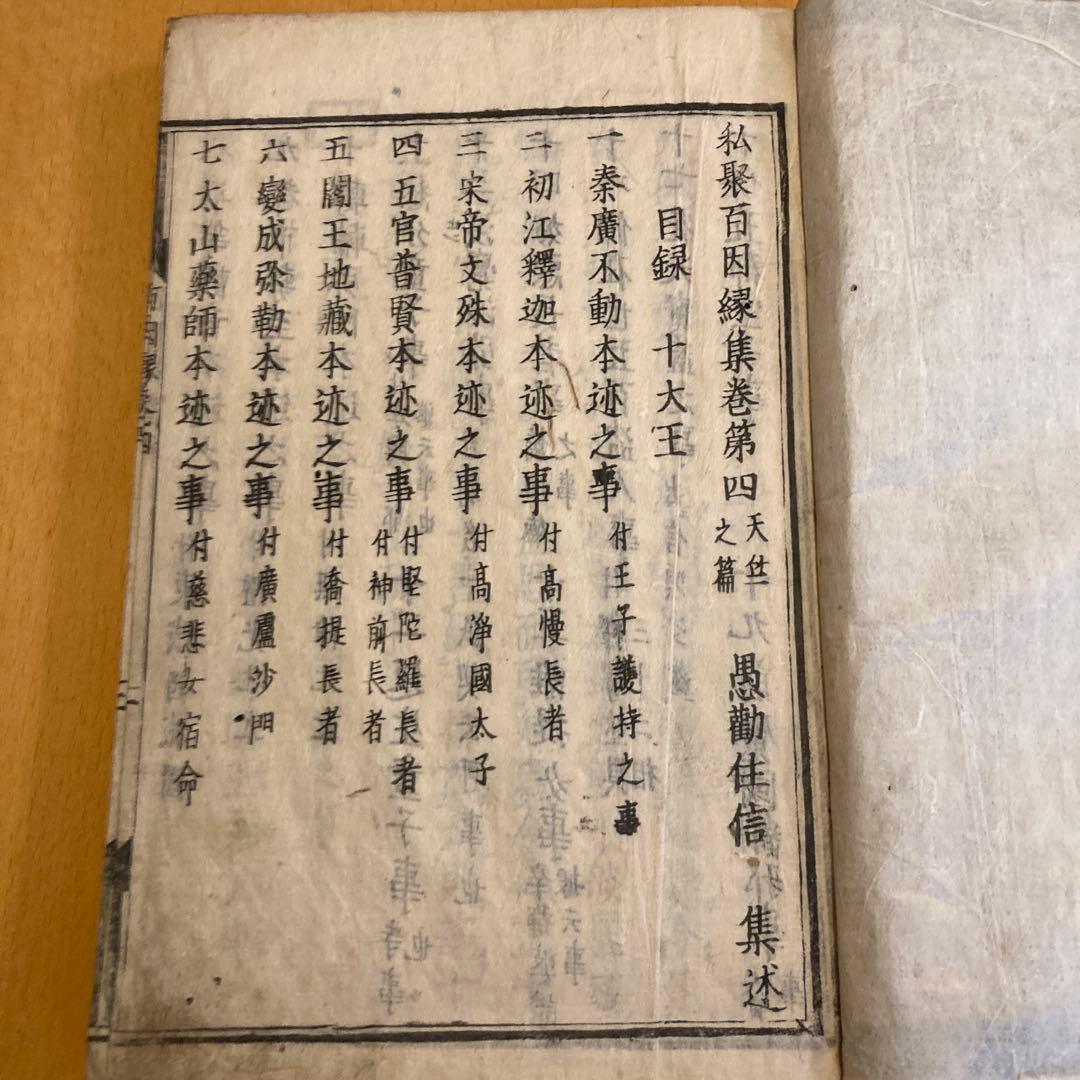 私聚百因縁集巻第四 天竺之篇 愚勸住信 集述
目録 十大王
一秦廣不動本迹之事 付王子護持之事
二初江釋迦本迹之事 付高慢長者
三宋帝文殊本迹之事 付高淨國太子
四五官普賢本迹之事 付堅陀羅長者 付神前長者
五閻王地藏本迹之事 付憍提長者
六變成弥勒本迹之事 付廣廬沙門
七太山藥師本迹之事 付慈悲女宿命